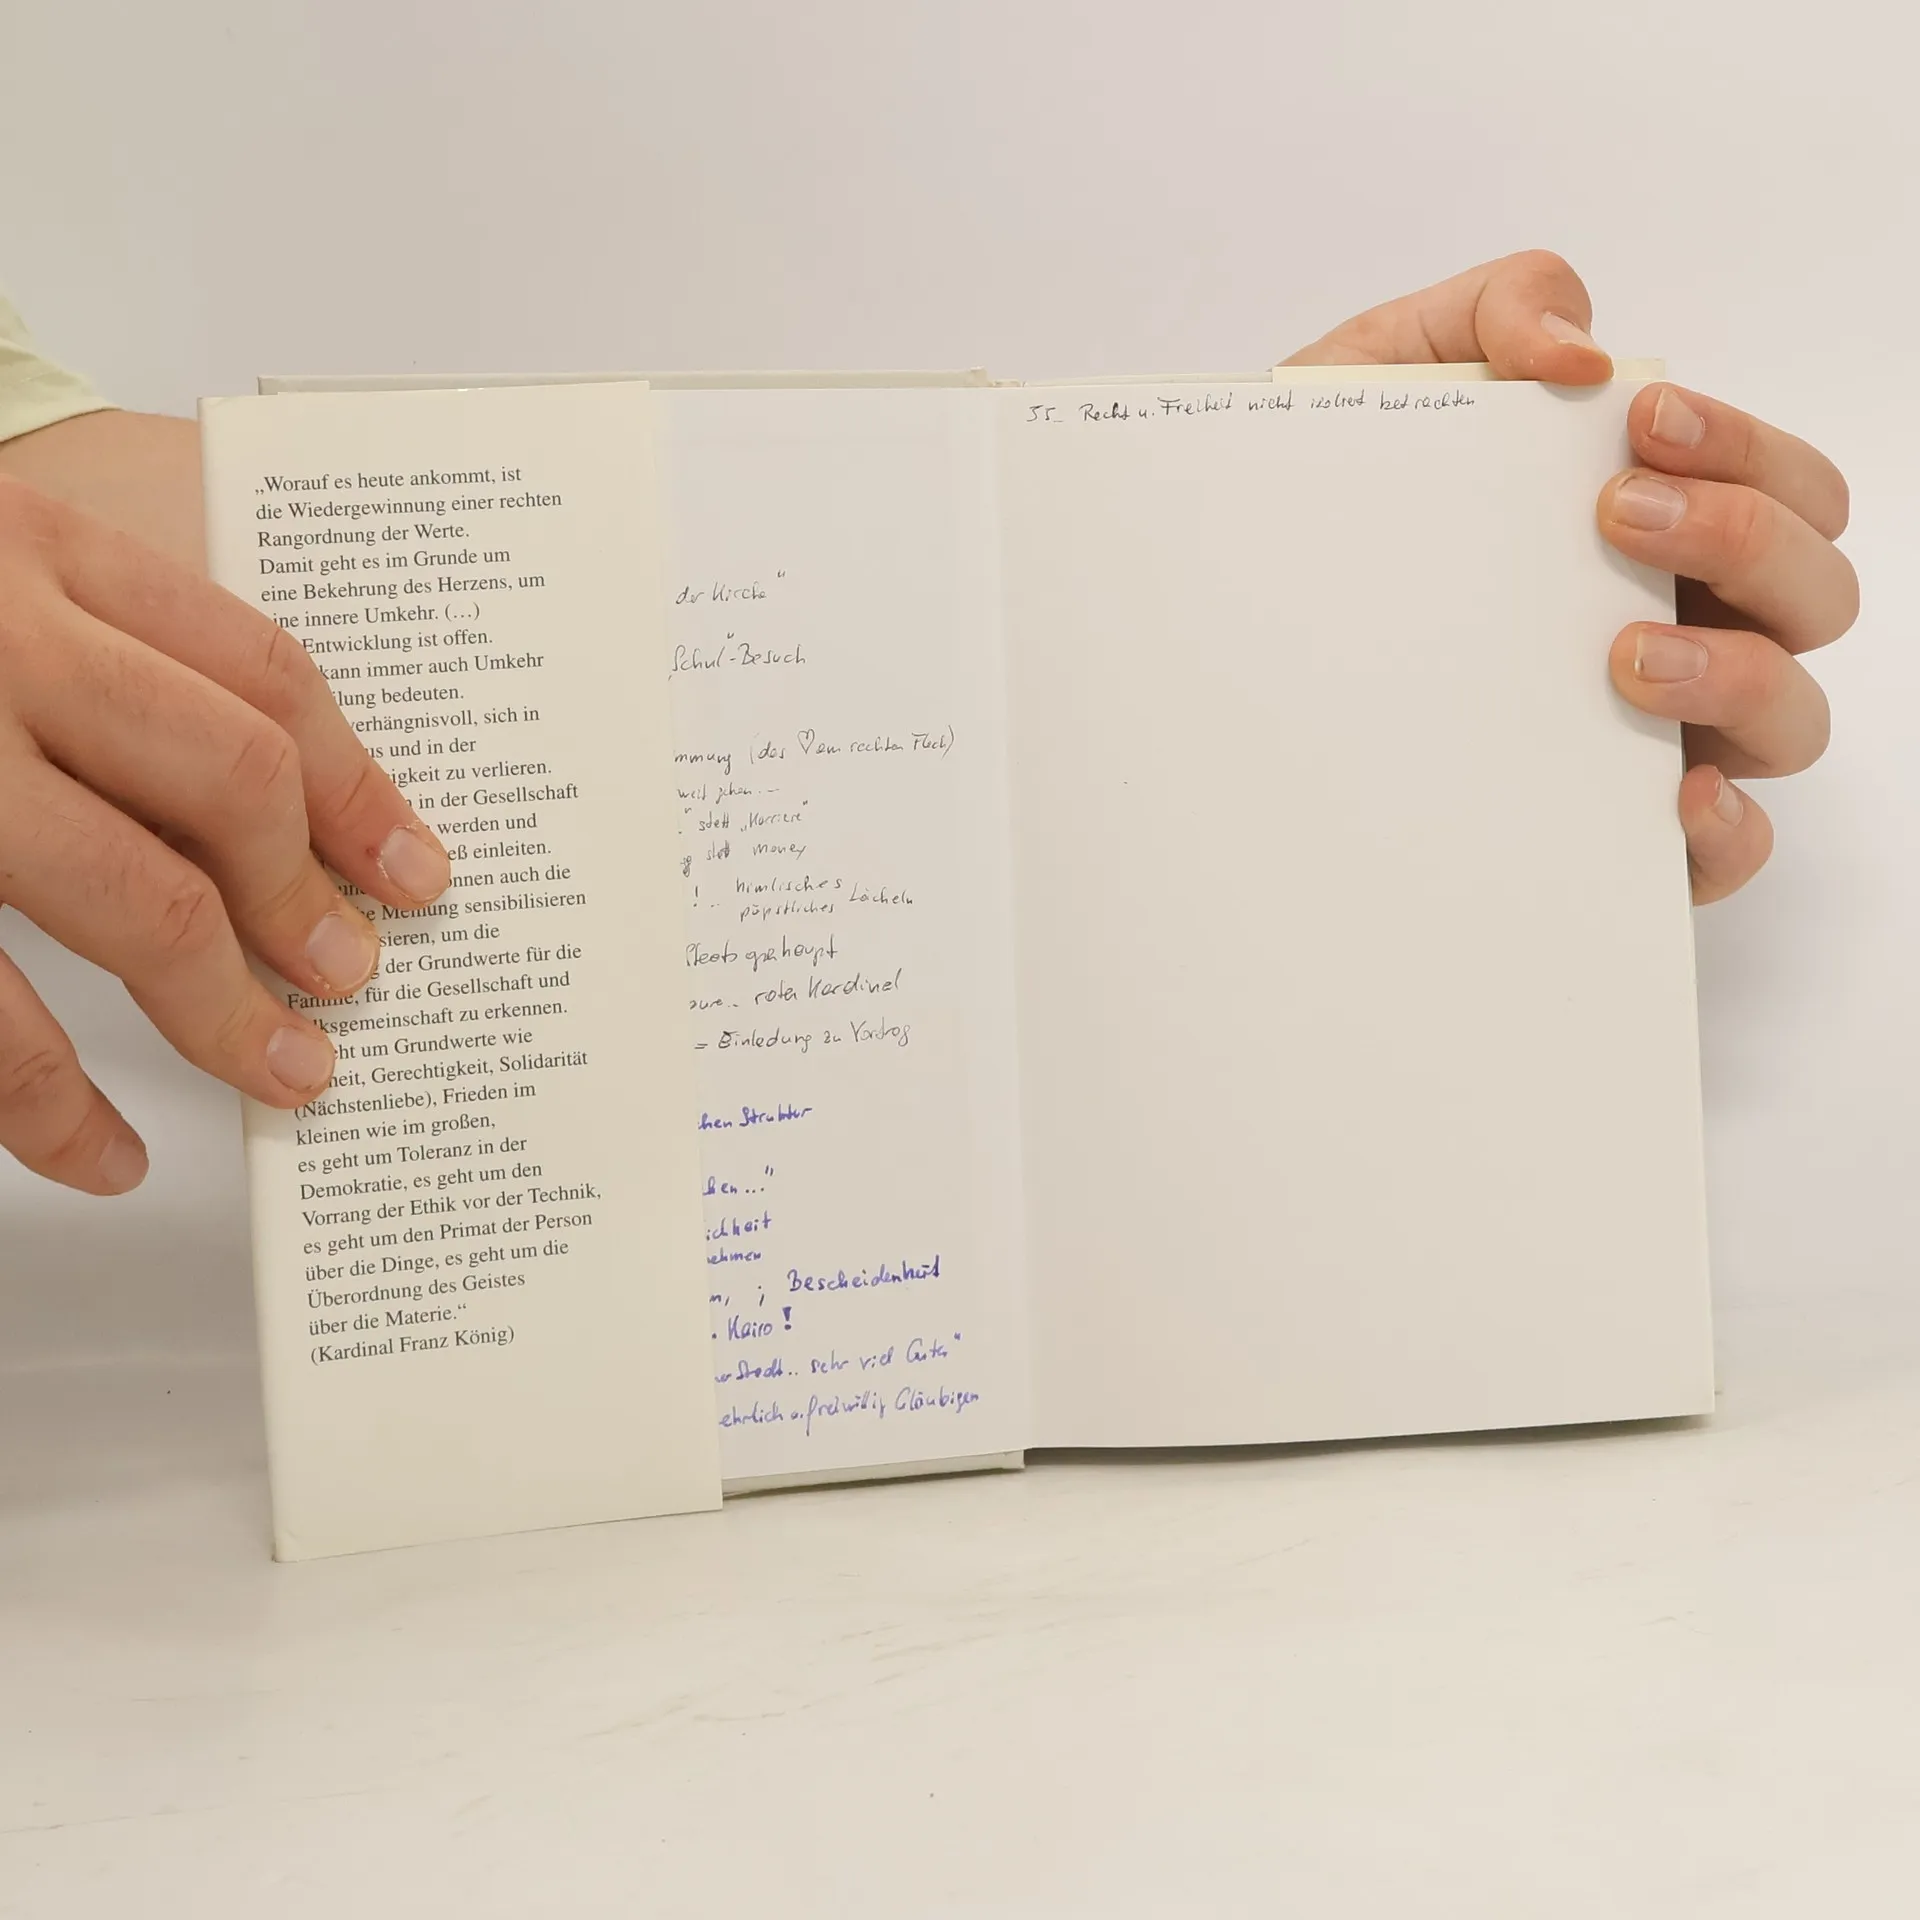 „Worauf es heute ankommt, ist
die Wiedergewinnung einer rechten
Rangordnung der Werte.
Damit geht es im Grunde um
eine Bekehrung des Herzens, um
ine innere Umkehr. (…)
Entwicklung ist offen.
kann immer auch Umkehr
ilung bedeuten.
verhängnisvoll, sich in
us und in der
igkeit zu verlieren.
in der Gesellschaft
werden und
eß einleiten.
önnen auch die
e Meinung sensibilisieren
sieren, um die
g der Grundwerte für die
Familie, für die Gesellschaft und
lksgemeinschaft zu erkennen.
ht um Grundwerte wie
heit, Gerechtigkeit, Solidarität
(Nächstenliebe), Frieden im
kleinen wie im großen,
es geht um Toleranz in der
Demokratie, es geht um den
Vorrang der Ethik vor der Technik,
es geht um den Primat der Person
über die Dinge, es geht um die
Überordnung des Geistes
über die Materie.“
(Kardinal Franz König)
der Kirche"
Schul"-Besuch
mmung (das ♡ am rechten Fleck)
weit gehen..
" statt „Karriere"
g statt money
! .. himmlisches
päpstliches Lächeln
Staatsoberhaupt
roter Kardinal
= Einladung zu Vortrag
chen Struktur
ken..."
ichkeit
nehmen
n, ; Bescheidenheit
. Kairo !
er Stadt.. sehr viel Gutes"
ehrlich u. freiwillig Gläubigen
35_ Recht u. Freiheit nicht isoliert betrachten